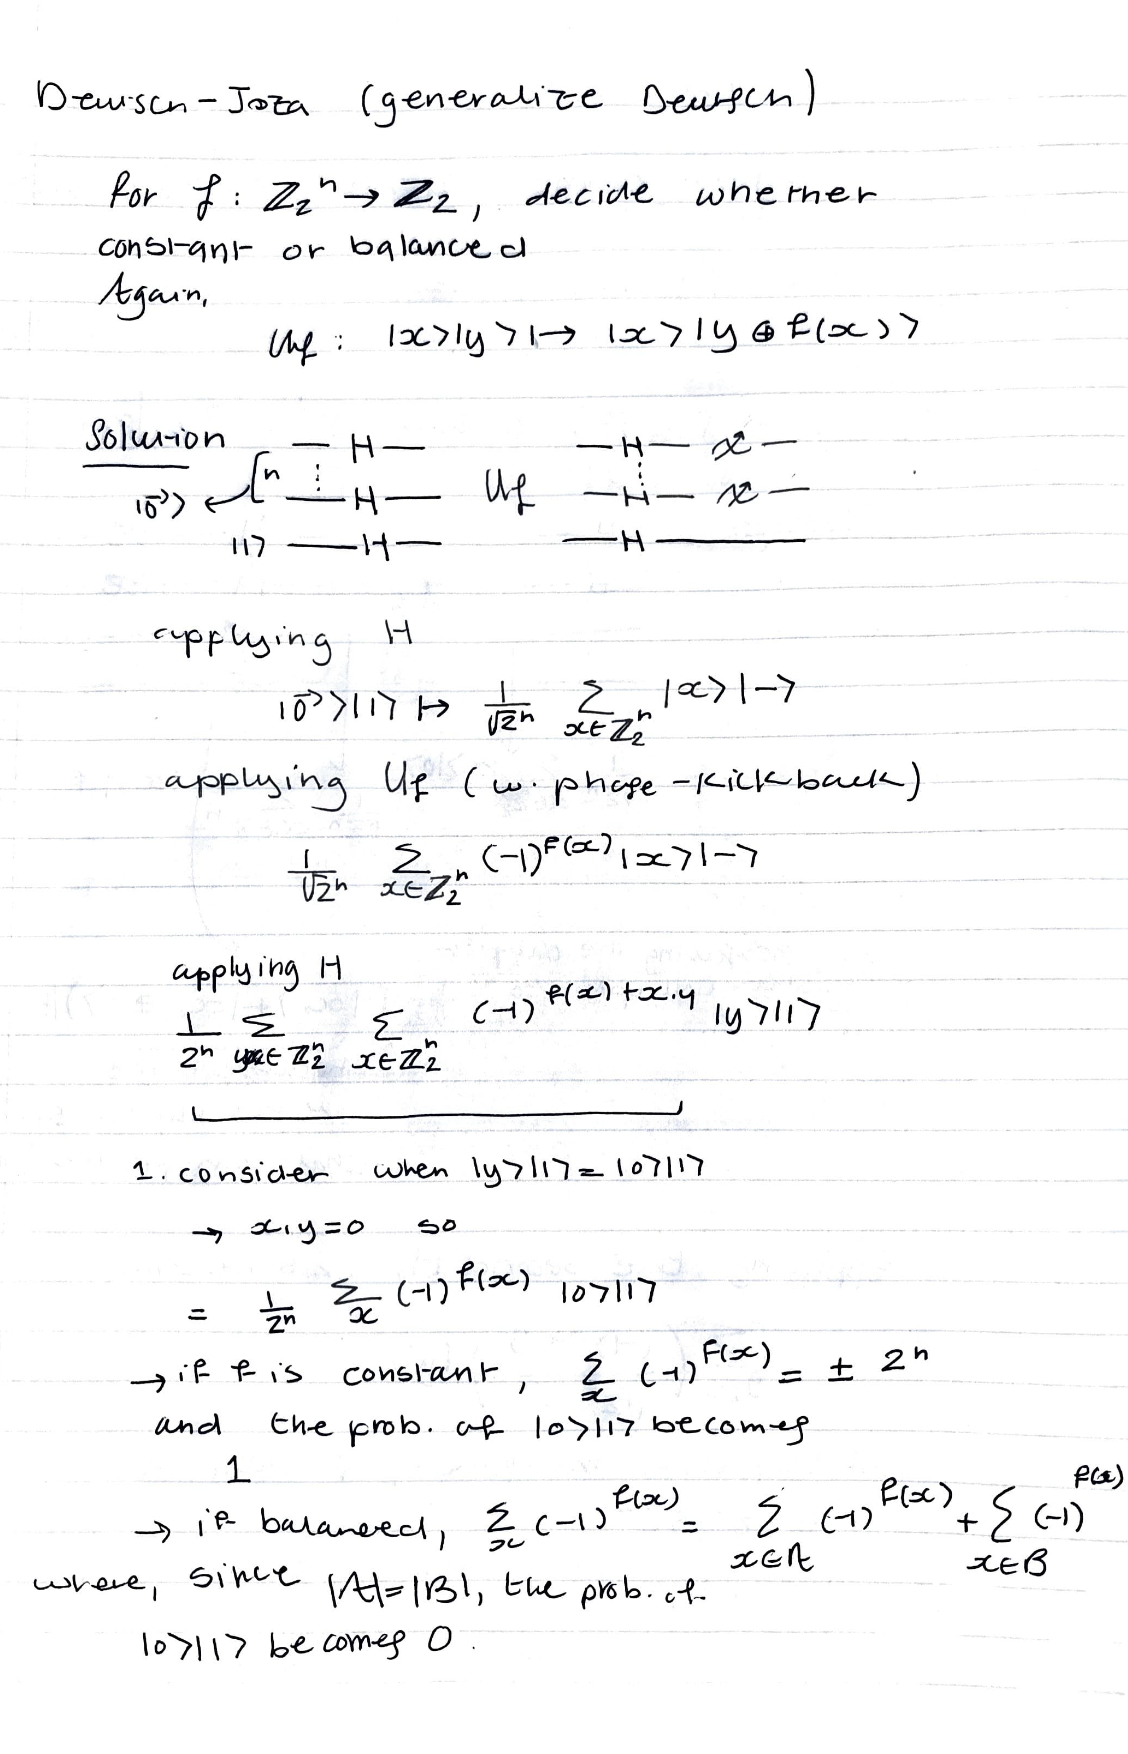 Deutsch-Joza (generalize Deutsch)
for f: Z₂ⁿ → Z₂, decide whether
constant or balanced
Again,
Uf : |x>|y> ↦ |x>|y ⊕ f(x)>
Solution — H — — H — x —
n ⋮ Uf ⋮
|0⃗> — H — — H — x —
|1> — H — — H —
applying H
|0⃗>|1> ↦ 1/√2ⁿ Σ_{x∈Z₂ⁿ} |x>|->
applying Uf (w. phase-kickback)
1/√2ⁿ Σ_{x∈Z₂ⁿ} (-1)^{f(x)} |x>|->
applying H
1/2ⁿ Σ_{y∈Z₂ⁿ} Σ_{x∈Z₂ⁿ} (-1)^{f(x)+x.y} |y>|1>
1. consider when |y>|1> = |0>|1>
→ x.y=0 so
= 1/2ⁿ Σ_x (-1)^{f(x)} |0>|1>
→ if f is constant, Σ_x (-1)^{f(x)} = ± 2ⁿ
and the prob. of |0>|1> becomes
1
→ if balanced, Σ_x (-1)^{f(x)} = Σ_{x∈A} (-1)^{f(x)} + Σ_{x∈B} (-1)^{f(x)}
where, since |A|=|B|, the prob. of
|0>|1> becomes 0.